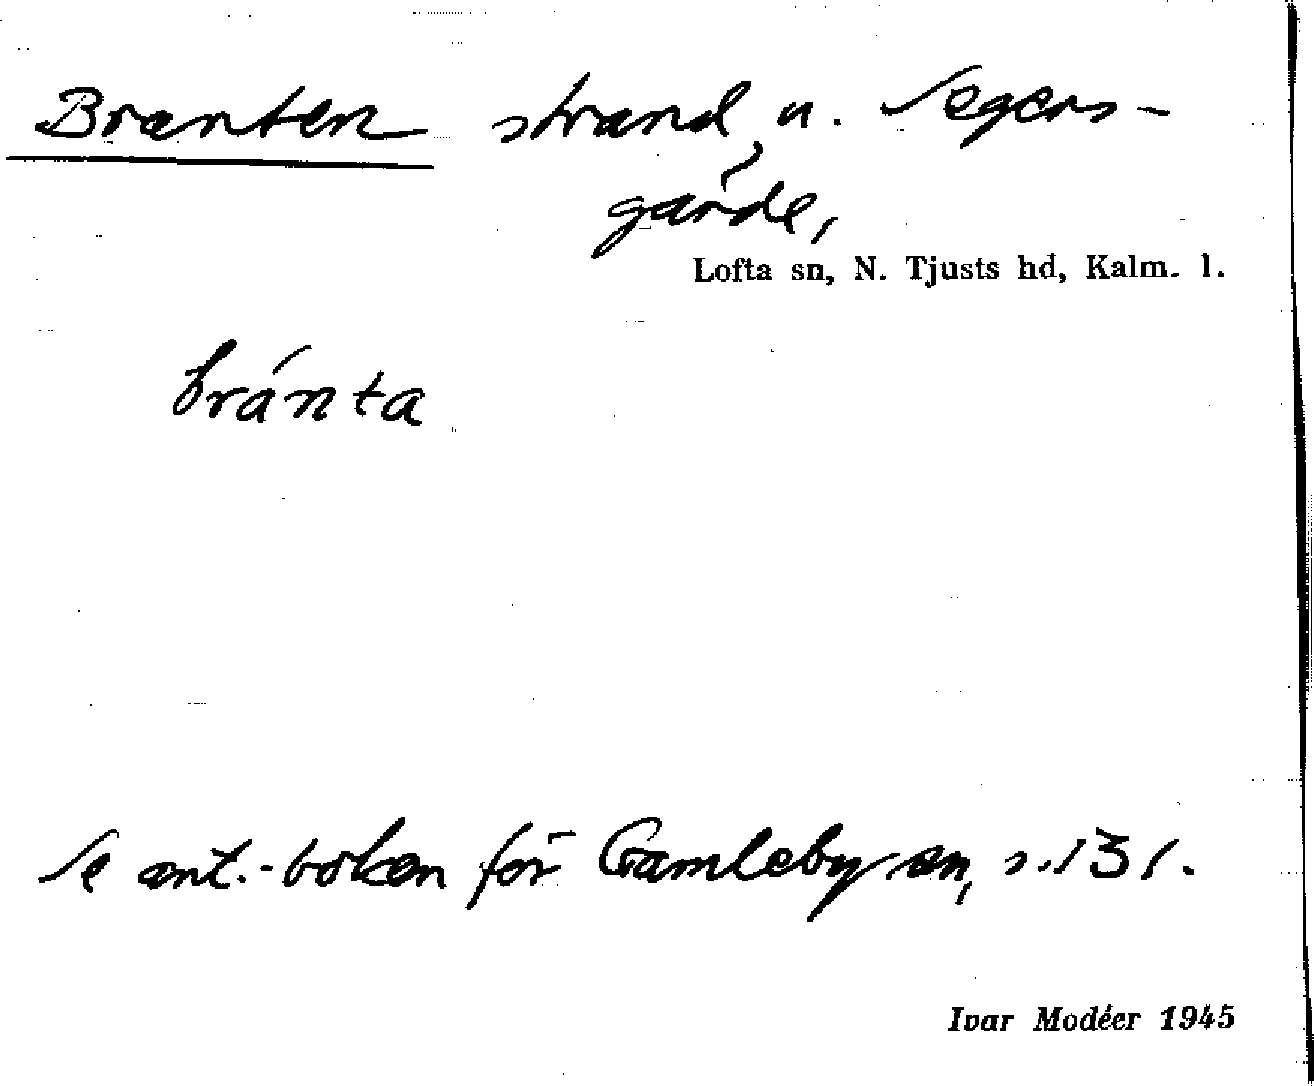 Branten strand, u. Segers-
gärde,
Lofta sn, N. Tjusts hd, Kalm. l.
bránta
Se ant.-boken för Gamleby sn, s. 131.
Ivar Modéer 1945